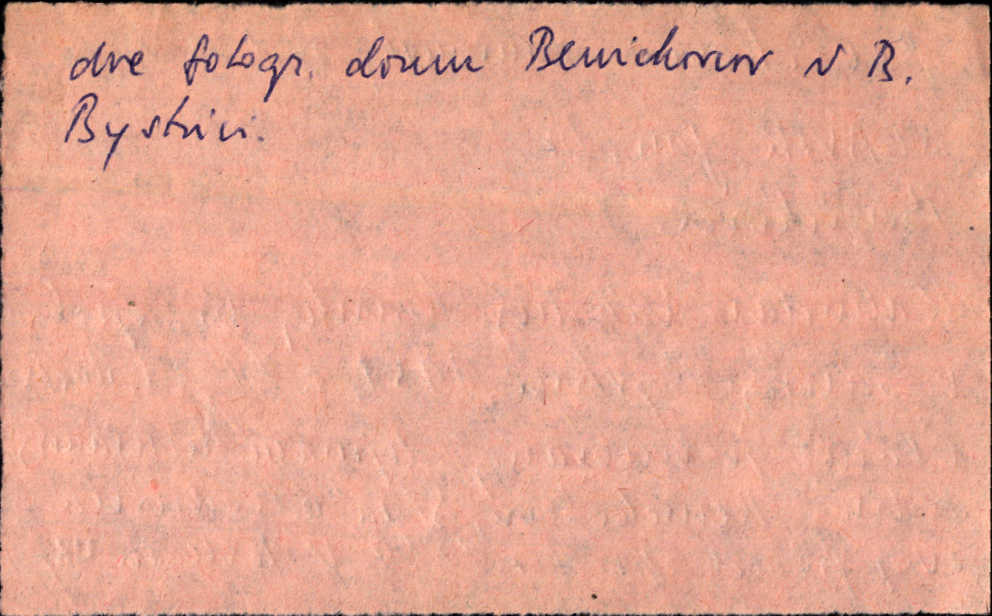 dve fotogr. domu Benickovcov v B.
Bystrici.